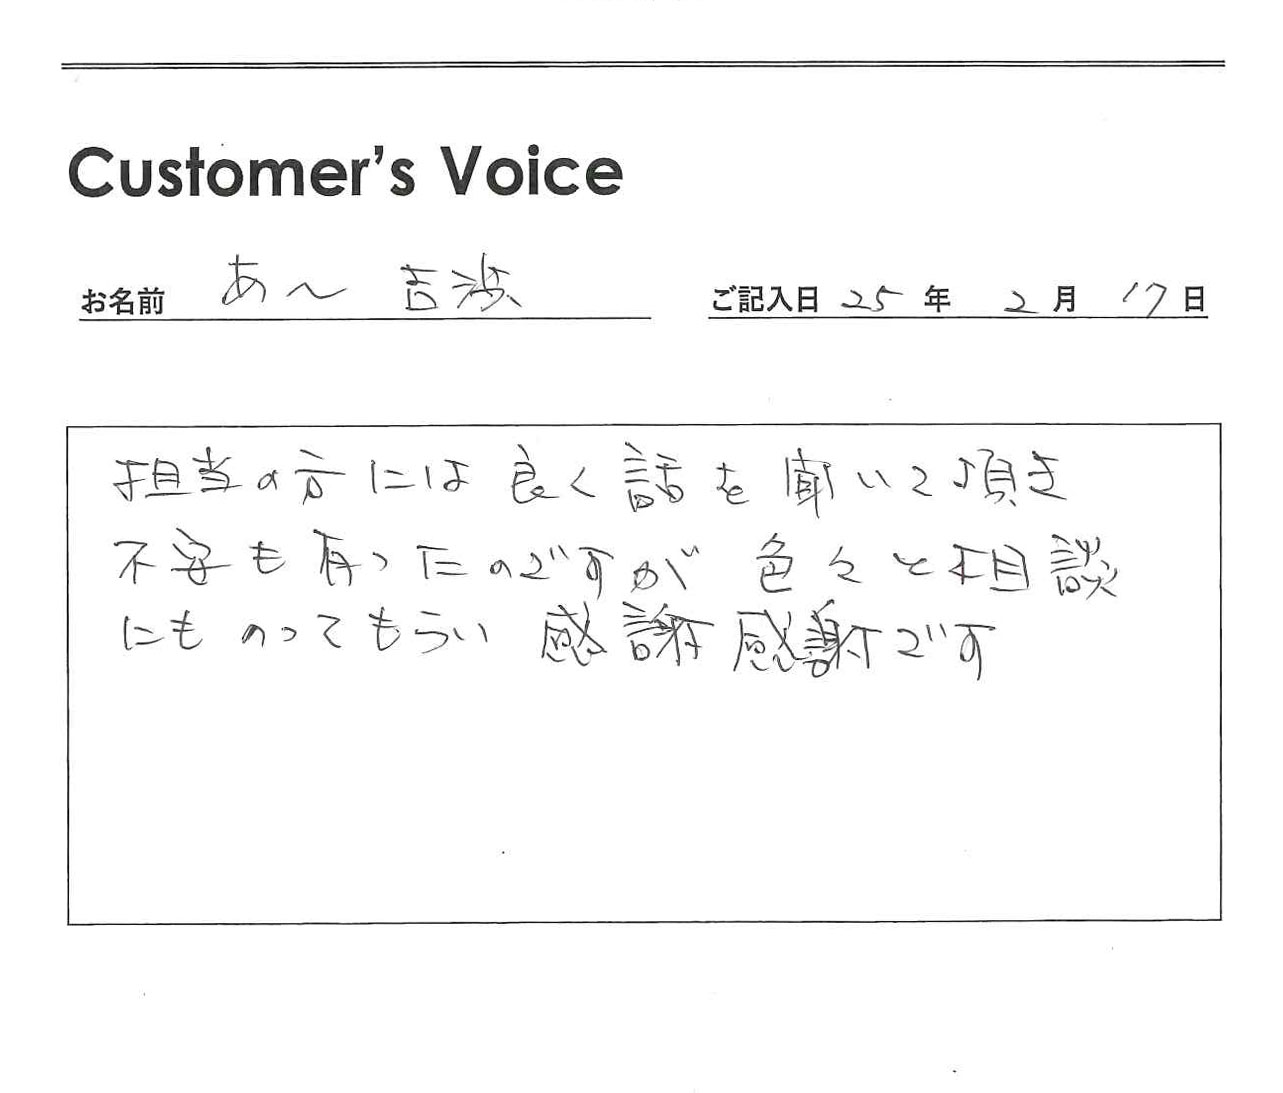 Customer's Voice
お名前 あ〜 吉渉 ご記入日 25 年 2 月 17 日
担当の方には良く話を聞いて頂き
不安も有ったのですが 色々と相談
にものってもらい 感謝感謝です